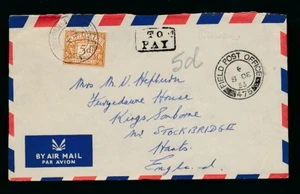 5d
TO
PAY
5d
FIELD POST OFFICE
8 DE
479
Mrs M. V. Hepburn
House
Kings Somborne
Nr STOCKBRIDGE
Hants
England.
BY AIR MAIL
PAR AVION